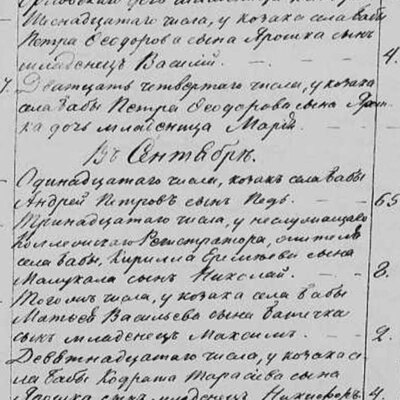 Шеснадцатаго числа, у козака села Бабы
Петра Ѳеодорова сына Ярошка сынъ
младенецъ Василій. 4.
7. Двадцать четвертаго числа, у козака
села Бабы Петра Ѳеодорова сына Ярош-
ка дочь младеница Марія.
Въ Сентябрѣ.
Одинадцатаго числа, козакъ села Бабы
Андрей Петровъ сынъ 65
Тринадцатаго числа, у неслужащаго
Коллежскаго Регистратора, жителя
села Бабы, Кирилла сына
сынъ Николай. 8.
Тогожъ числа, у козака села Бабы
Матвея Васильева сына
сынъ младенецъ Максимъ. 2.
Девятнадцатаго числа, у козака се-
ла Бабы Кодрата Тарасіева сына
Ярошка сынъ младенецъ Никифоръ. 4.